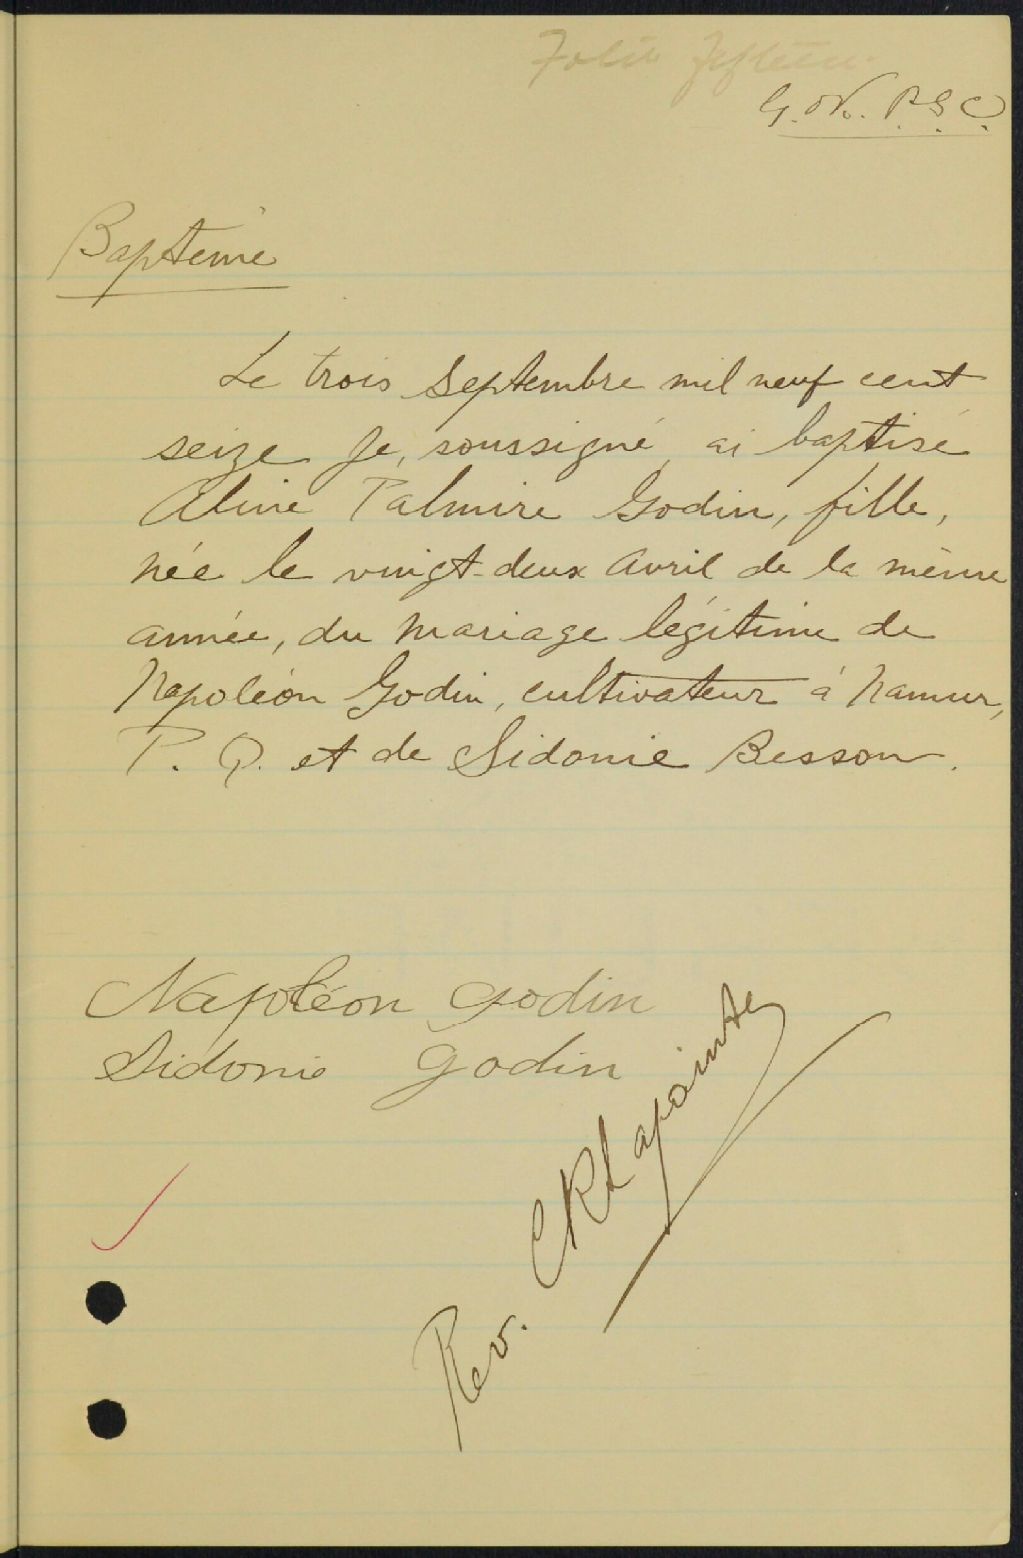 Folio fifteen
G. N. P. S. C.
Baptême
Le trois Septembre mil neuf cent
seize Je, soussigné, ai baptisé
Aline Palmire Godin, fille,
née le vingt-deux Avril de la même
année, du mariage légitime de
Napoléon Godin, cultivateur à Namur,
P. Q. et de Sidonie Besson.
Napoléon Godin
Sidonie Godin
Rev. C R Lapointe